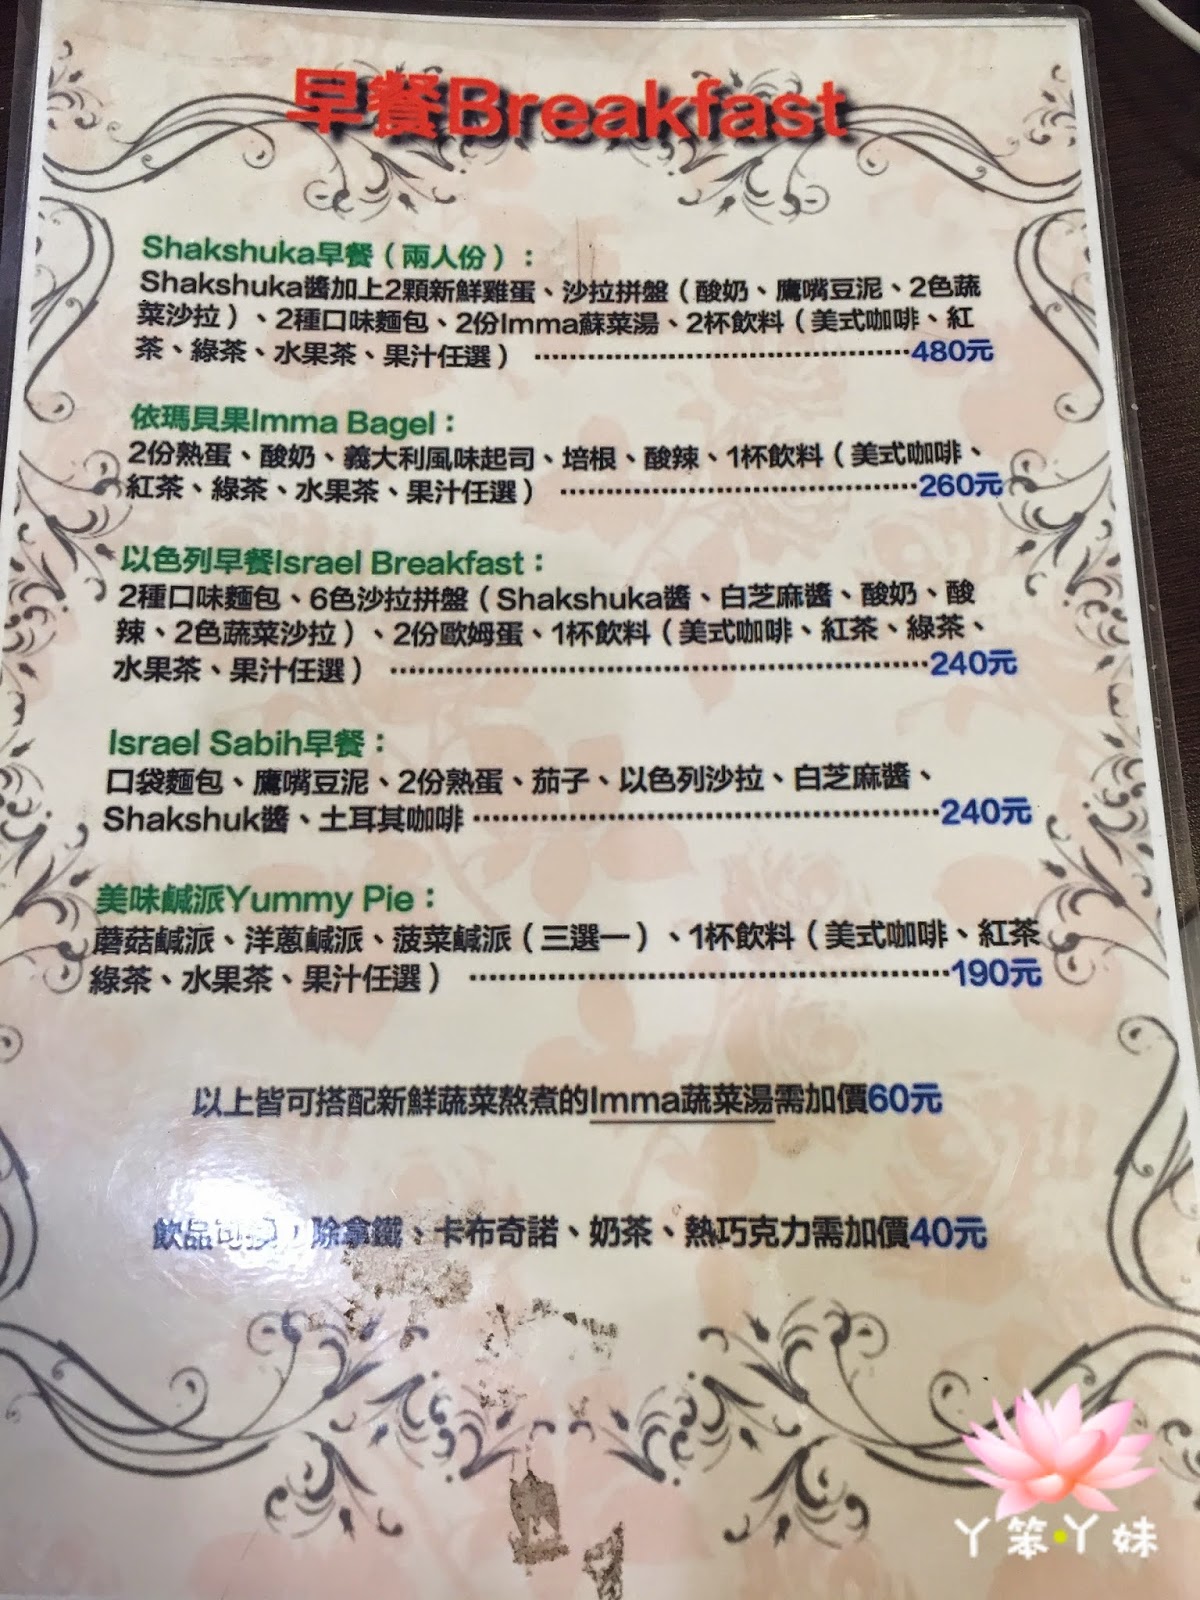 早餐Breakfast
Shakshuka早餐（兩人份）：
Shakshuka醬加上2顆新鮮雞蛋、沙拉拼盤（酸奶、鷹嘴豆泥、2色蔬
菜沙拉）、2種口味麵包、2份Imma蘇菜湯、2杯飲料（美式咖啡、紅
茶、綠茶、水果茶、果汁任選）⋯⋯⋯⋯⋯⋯⋯⋯⋯⋯480元
依瑪貝果Imma Bagel：
2份熟蛋、酸奶、義大利風味起司、培根、酸辣、1杯飲料（美式咖啡、
紅茶、綠茶、水果茶、果汁任選）⋯⋯⋯⋯⋯⋯⋯⋯⋯⋯260元
以色列早餐Israel Breakfast：
2種口味麵包、6色沙拉拼盤（Shakshuka醬、白芝麻醬、酸奶、酸
辣、2色蔬菜沙拉）、2份歐姆蛋、1杯飲料（美式咖啡、紅茶、綠茶、
水果茶、果汁任選）⋯⋯⋯⋯⋯⋯⋯⋯⋯⋯⋯⋯⋯240元
Israel Sabih早餐：
口袋麵包、鷹嘴豆泥、2份熟蛋、茄子、以色列沙拉、白芝麻醬、
Shakshuk醬、土耳其咖啡⋯⋯⋯⋯⋯⋯⋯⋯⋯⋯⋯⋯240元
美味鹹派Yummy Pie：
蘑菇鹹派、洋蔥鹹派、菠菜鹹派（三選一）、1杯飲料（美式咖啡、紅茶
綠茶、水果茶、果汁任選）⋯⋯⋯⋯⋯⋯⋯⋯⋯⋯⋯⋯190元
以上皆可搭配新鮮蔬菜熬煮的Imma蔬菜湯需加價60元
飲品可換，除拿鐵、卡布奇諾、奶茶、熱巧克力需加價40元
丫笨•丫妹